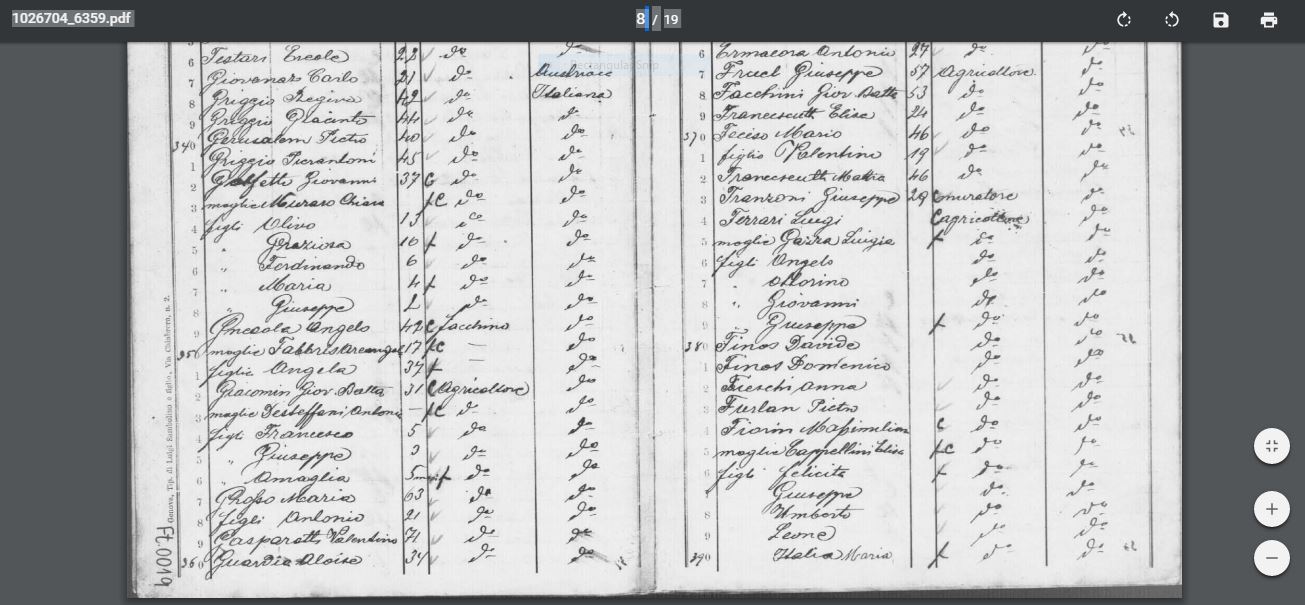 1026704_6359.pdf
8 / 19
6 Testari Ercole 22 do do
7 Giovanars Carlo 21 do Austriaca
8 Griggio Regina 42 do Italiana
9 Griggio Diacinto 44 do do
340 Gerusalem Pietro 40 do do
1 Griggio Pierantoni 45 do do
2 Galfetti Giovanni 37 C do do
3 moglie Muraro Chiara fC do do
4 figli Olivo 13 do do
5 " Graziosa 10 f do do
6 " Ferdinando 6 do do
7 " Maria 4 f do do
8 " Giuseppe 2 do do
9 Gnecola Angelo 42 C facchino do
350 moglie Fabbris Arcangela 17 fC — do
1 figlia Angela 37 f — do
2 Giacomin Giov Batta 31 C Agricoltore do
3 moglie Desteffani Antonia — fC do do
4 figli Francesco 5 do do
5 " Giuseppe 3 do do
6 " Amaglia 5 mesi f do do
7 Grosso Maria 63 do do
8 figli Antonio 21 do do
9 Gasparotti Valentino 71 do do
360 Guardia Aloise 34 do do
6 Ermacora Antonio 27 do do
7 Fruet Giuseppe 57 Agricoltore do
8 Facchini Giov Batta 53 do do
9 Francescutti Elisa 24 do do
370 Feciso Mario 46 do do
1 figlio Valentino 19 do do
2 Francescutti Mattia 46 do do
3 Franzoni Giuseppe 29 C muratore do
4 Ferrari Luigi C agricoltore do
5 moglie Gazza Luigia f do do
6 figli Angelo do do
7 " Ottorino do do
8 " Giovanni do do
9 " Giuseppa f do do
380 Finos Davide do do
1 Finos Domenico do do
2 Fieschi Anna do do
3 Furlan Pietro do do
4 Fiorin Massimilian C do do
5 moglie Cappellini Elisa fC do do
6 figli felicita f do do
7 Giuseppe do do
8 Umberto do do
9 Leone do do
390 Italia Maria f do do
Genova, Tip. di Luigi Sambolino e figlio, Via Chiabrera, n. 2.
Ft.0019